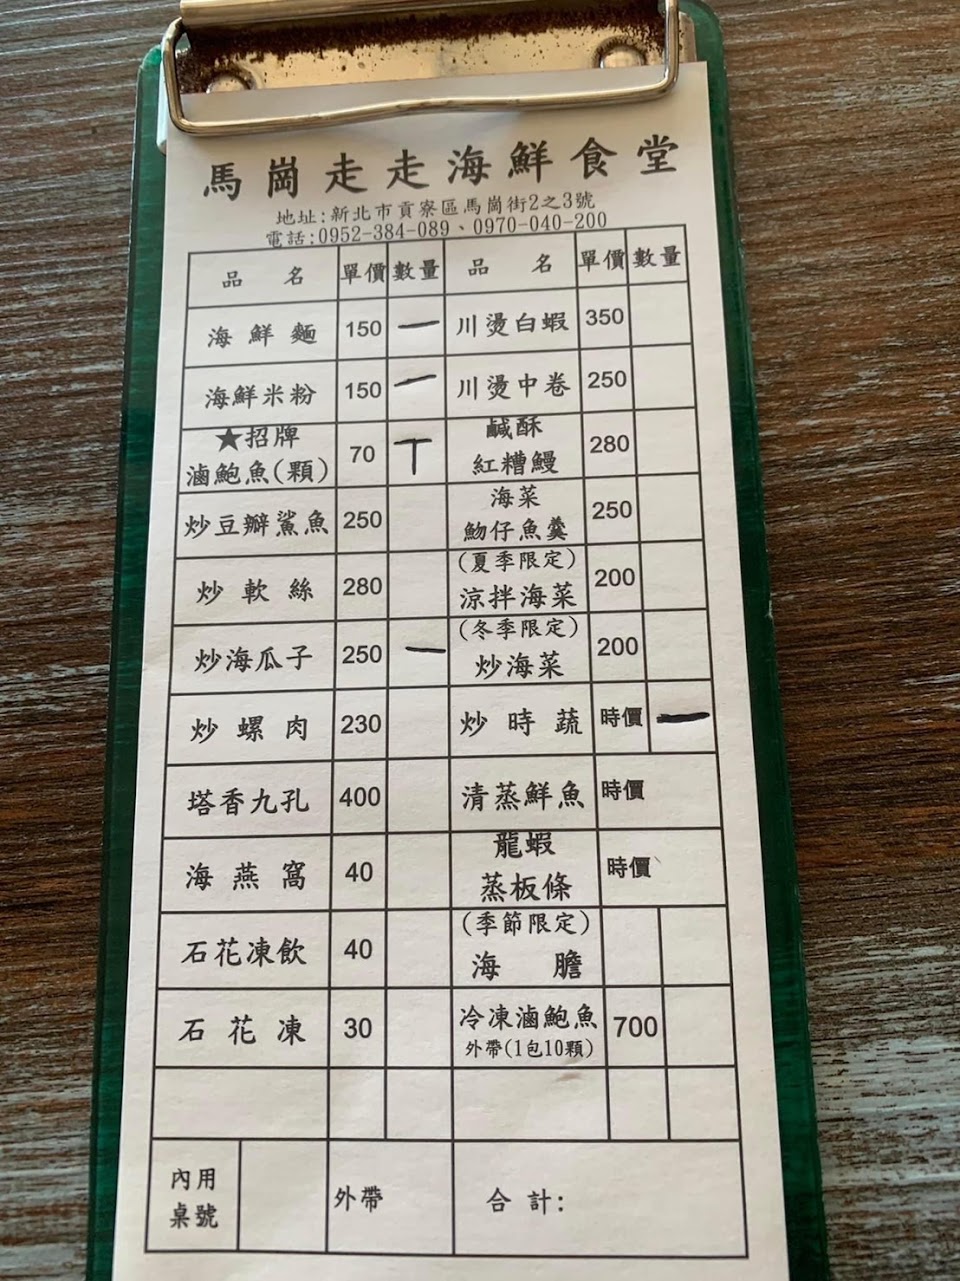 馬崗走走海鮮食堂
地址:新北市貢寮區馬崗街2之3號
電話:0952-384-089、0970-040-200
品 名 單價 數量 品 名 單價 數量
海鮮麵 150 一 川燙白蝦 350
海鮮米粉 150 一 川燙中卷 250
★招牌
滷鮑魚(顆) 70 丅 鹹酥
紅糟鰻 280
炒豆瓣鯊魚 250 海菜
魩仔魚羹 250
炒軟絲 280 (夏季限定)
涼拌海菜 200
炒海瓜子 250 一 (冬季限定)
炒海菜 200
炒螺肉 230 炒時蔬 時價 一
塔香九孔 400 清蒸鮮魚 時價
海燕窩 40 龍蝦
蒸板條 時價
石花凍飲 40 (季節限定)
海膽
石花凍 30 冷凍滷鮑魚
外帶(1包10顆) 700
內用
桌號 外帶 合計: